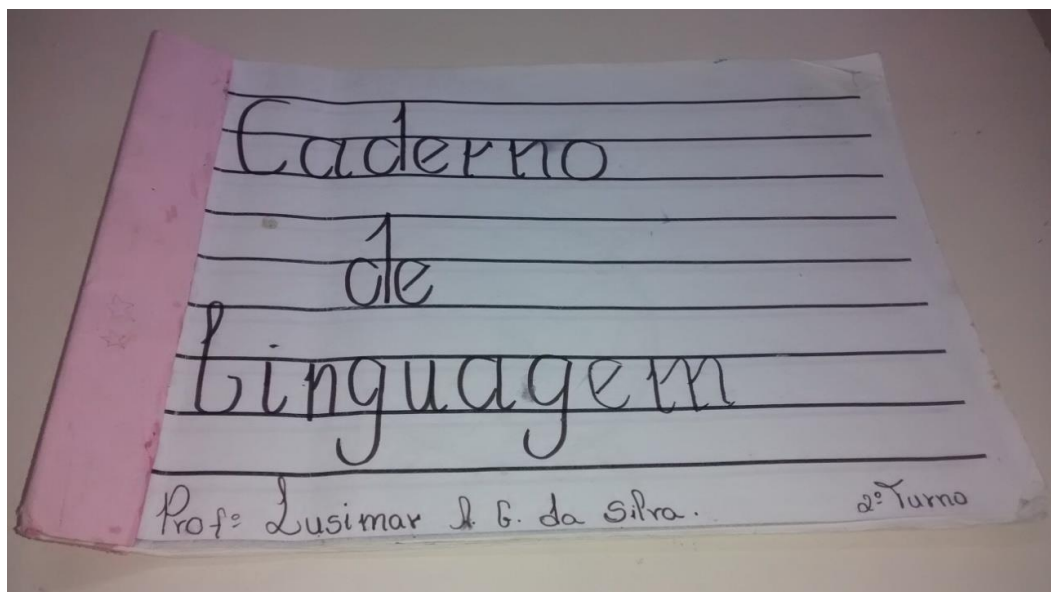 Caderno
de
Linguagem
Profº Lusimar A. G. da Silva. 2º Turno